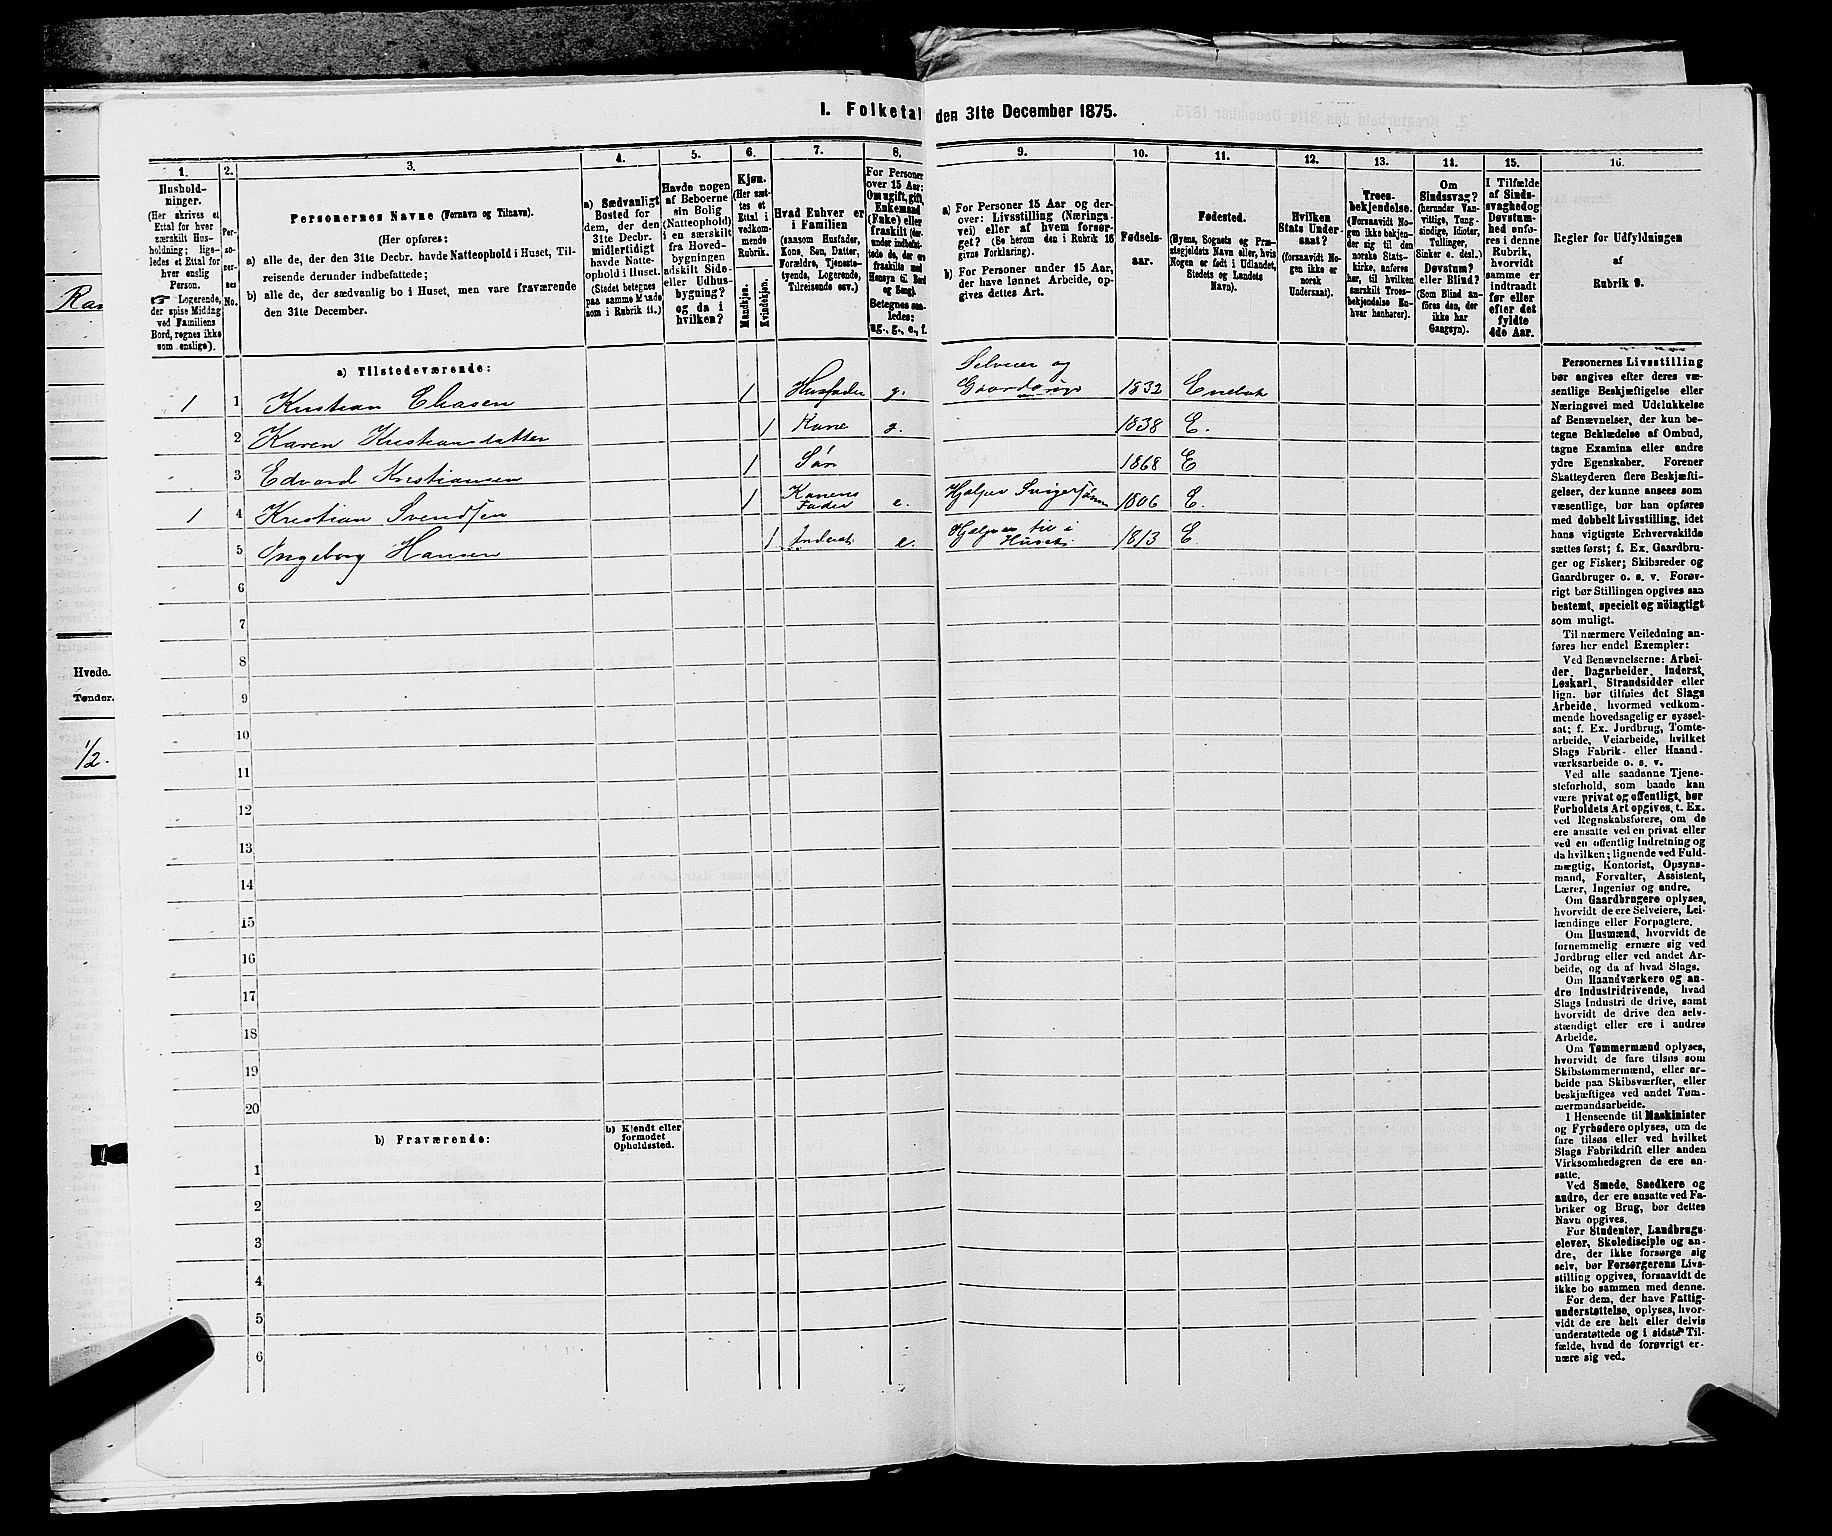 I. Folketal den 31te December 1875.
1.
2.
3.
4.
5.
6.
7.
8.
9.
10.
11.
12.
13.
14.
15.
16.
Hushold-
ninger.
(Her skrives et
Ettal for hver
særskilt Hus-
holdning; lige-
ledes et Ettal for
hver enslig
Person.
☞ Logerende,
der spise Middag
ved Familiens
Bord, regnes ikke
som enslige).
Per-
so-
ner-
nes
No.
Personernes Navne (Fornavn og Tilnavn).
(Her opføres:
a) alle de, der den 31te Decbr. havde Natteophold i Huset, Til-
reisende derunder indbefattede;
b) alle de, der sædvanlig bo i Huset, men vare fraværende
den 31te December.
a) Sædvanligt
Bosted for
dem, der den
31te Decbr.
midlertidigt
havde Natte-
ophold i Huset.
(Stedet betegnes
paa samme Maade
som i Rubrik 11.)
Havde nogen
af Beboerne
sin Bolig
(Natteophold)
i en særskilt
fra Hoved-
bygningen
adskilt Side-
eller Udhus-
bygning?
og da i
hvilken?
Kjøn.
(Her sæt-
tes et
Ettal i
vedkom-
mende
Rubrik.
Mandkjøn.
Kvindekjøn.
Hvad Enhver er
i Familien
(saasom Husfader,
Kone, Søn, Datter,
Forældre, Tjeneste-
tyende, Logerende,
Tilreisende osv.)
For Personer
over 15 Aar:
Om ugift, gift,
Enkemand
(Enke) eller
fraskilt (der-
under indbefat-
tede de, der ere
fraskilte med
Hensyn til Bord
og Seng).
Betegnes saa-
ledes:
ug., g., e., f.
a) For Personer 15 Aar og der-
over: Livsstilling (Nærings-
vei) eller af hvem forsør-
get? (Se herom den i Rubrik 16
givne Forklaring).
b) For Personer under 15 Aar,
der have lønnet Arbeide, op-
gives dettes Art.
Fødsels-
aar.
Fødested.
(Byens, Sognets og Præ-
stegjeldets Navn eller, hvis
Nogen er født i Udlandet,
Stedets og Landets
Navn).
Hvilken
Stats Under-
saat?
(forsaavidt No-
gen ikke er
norsk
Undersaat).
Troes-
bekjendelse.
(Forsaavidt No-
gen ikke bekjen-
der sig til den
norske Stats-
kirke, anføres
her, til hvilken
særskilt Troes-
bekjendelse En-
hver henhører).
Om
Sindssvag?
(herunder Van-
vittige, Tung-
sindige, Idioter,
Tullinger,
Sinker o. desl.)
Døvstum?
eller Blind?
(Som Blind an-
føres den, der
ikke har
Gangsyn).
I Tilfælde
af Sinds-
svaghed og
Døvstum-
hed anfø-
res i denne
Rubrik,
hvorvidt
samme er
indtraadt
før eller
efter det
fyldte
4de Aar.
Regler for Udfyldningen
af
Rubrik 9.
a) Tilstedeværende:
Selveier og
1 1 Kristian Eliasen 1 Husfader g. Gaardbruger 1832 Enebak
2 Karen Kristiansdatter 1 Kone g. 1838 E.
3 Edvard Kristiansen 1 Søn 1868 E
1 4 Kristian Svendsen 1 Konens Fader e. Hjælper Svigersønnen 1806 E.
5 Ingeborg Hansen 1 Inderst e. Hjælper til i Huset 1813 E
6
7
8
9
10
11
12
13
14
15
16
17
18
19
20
b) Fraværende:
b) Kjendt eller
formodet
Opholdssted.
1
2
3
4
5
6
Personernes Livsstilling
bør angives efter deres væ-
sentlige Beskjæftigelse eller
Næringsvei med Udelukkelse
af Benævnelser, der kun be-
tegne Beklædelse af Ombud,
tagne Examina eller andre
ydre Egenskaber. Forener
Skatteyderen flere Beskjæfti-
gelser, der kunne ansees som
væsentlige, bør han opføres
med dobbelt Livsstilling, idet
hans vigtigste Erhvervskilde
sættes først; f. Ex. Gaardbru-
ger og Fisker; Skibsreder og
Gaardbruger o. s. v. Forøv-
rigt bør Stillingen opgives saa
bestemt, specielt og nøiagtigt
som muligt.
Til nærmere Veiledning an-
føres her endel Exempler:
Ved Benævnelserne: Arbei-
der, Dagarbeider, Inderst,
Løskarl, Strandsidder eller
lign. bør tilføies det Slags
Arbeide, hvormed vedkom-
mende hovedsagelig er syssel-
sat; f. Ex. Jordbrug, Tomte-
arbeide, Veiarbeide, hvilket
Slags Fabrik- eller Haand-
værksarbeide o. s. v.
Ved alle saadanne Tjene-
steforhold, som baade kan
være privat og offentligt, bør
Forholdets Art opgives, t. Ex.
ved Regnskabsførere, om de
ere ansatte ved en privat eller
ved en offentlig Indretning og
da hvilken; lignende ved Fuld-
mægtig, Kontorist, Opsyns-
mand, Forvalter, Assistent,
Lærer, Ingeniør og andre.
Om Gaardbrugere oplyses,
hvorvidt de ere Selveiere, Lei-
lændinge eller Forpagtere.
Om Husmænd, hvorvidt de
fornemmelig ernære sig ved
Jordbrug eller ved andet Ar-
beide, og da af hvad Slags.
Om Haandværkere og an-
dre Industridrivende, hvad
Slags Industri de drive, samt
hvorvidt de drive den selv-
stændigt eller ere i andres
Arbeide.
Om Tømmermænd oplyses,
hvorvidt de fare tilsøs som
Skibstømmermænd, eller ar-
beide paa Skibsværfter, eller
beskjæftiges ved andet Tøm-
mermandsarbeide.
I Henseende til Maskinister
og Fyrbødere oplyses, om de
fare tilsøs eller ved hvilket
Slags Fabrikdrift eller anden
Virksomhedsgren de ere an-
satte.
Ved Smede, Snedkere og
andre, der ere ansatte ved Fa-
briker og Brug, bør dettes
Navn opgives.
For Studenter, Landbrugs-
elever, Skoledisciple og an-
dre, der ikke forsørge sig
selv, bør Forsørgerens Livs-
stilling opgives, forsaavidt de
ikke bo sammen med denne.
For dem, der have Fattig-
understøttelse, oplyses, hvor-
vidt de ere helt eller delvis
understøttede og i sidste Til-
fælde, hvad de forøvrigt er-
nære sig ved.
Hvede.
Tønder.
1/2.